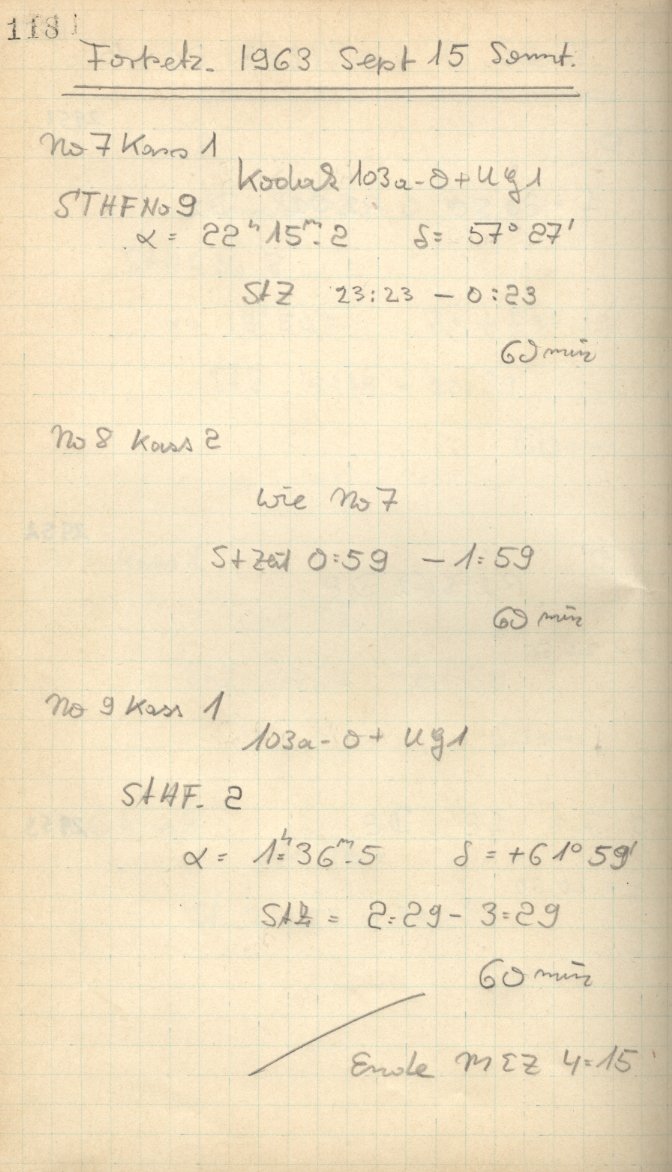 118
Fortsetz. 1963 Sept 15 Sonnt.
No 7 Kass 1
Kodak 103a-O + UG1
STHF No 9
α = 22ʰ 15ᵐ.2 δ = 57° 27'
StZ 23:23 – 0:23
60 min
No 8 Kass 2
wie No 7
StZeit 0:59 – 1:59
60 min
No 9 Kass 1
103a-O + UG1
StHF. 2
α = 1ʰ 36ᵐ.5 δ = +61° 59'
StZ = 2:29 – 3:29
60 min
Ende MEZ 4:15